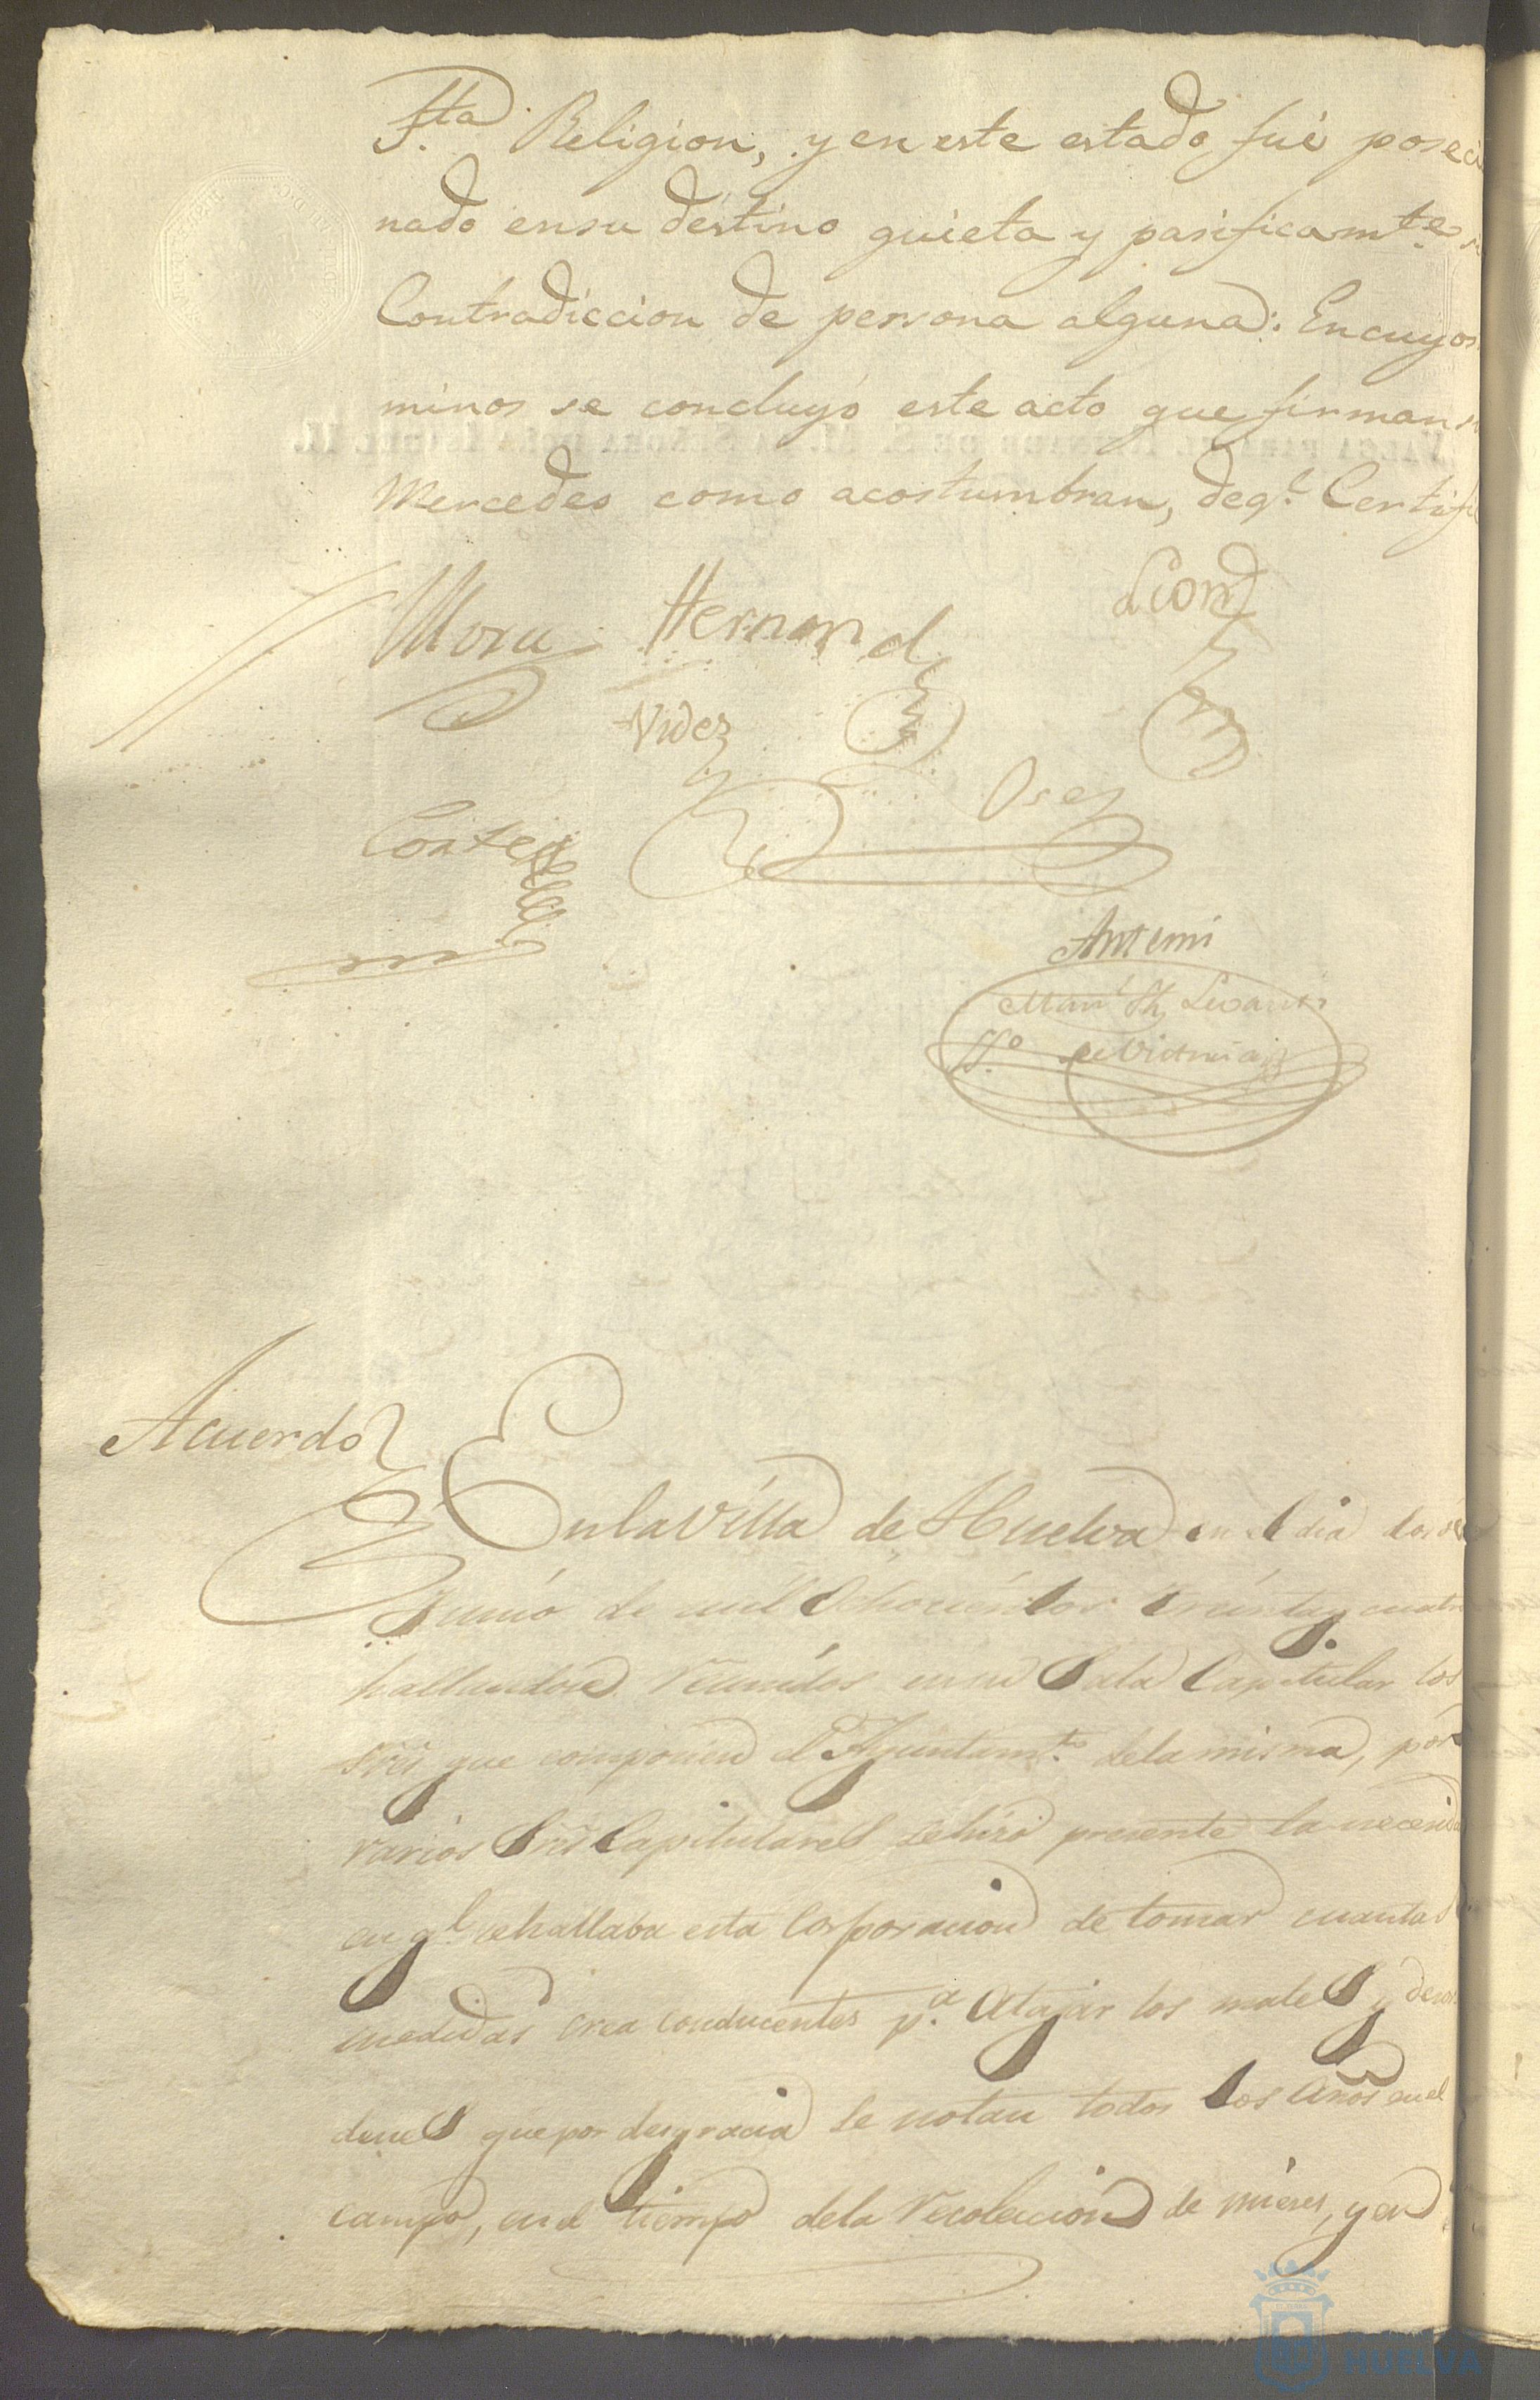 Sta. Religion, y en este estado fué posecio
nado en su destino quieta y pasificamte.
Contradiccion de persona alguna: En cuyos
minos se concluyó este acto que firman
Mercedes como acostumbran, deql. Certifi
Mora Hernand Leon
Videz
Osez
Cortes
Antemi
Manl.
SSo.
Acuerdo
En la Villa de Huelva en el dia dos de
Junio de mil Ochocientos treinta y cuatro
hallandose reunidos en su Sala Capitular los
Sres que componen el Ayuntamto. dela misma, por
varios Sres Capitulares se hizo presente la necesida
en ql. se hallaba esta Corporacion de tomar cuantas
medidas crea conducentes pa. Atajar los males y desor
denes que por desgracia se notan todos los años en el
campo, en el tiempo dela recoleccion de mieses, y en
HUELVA